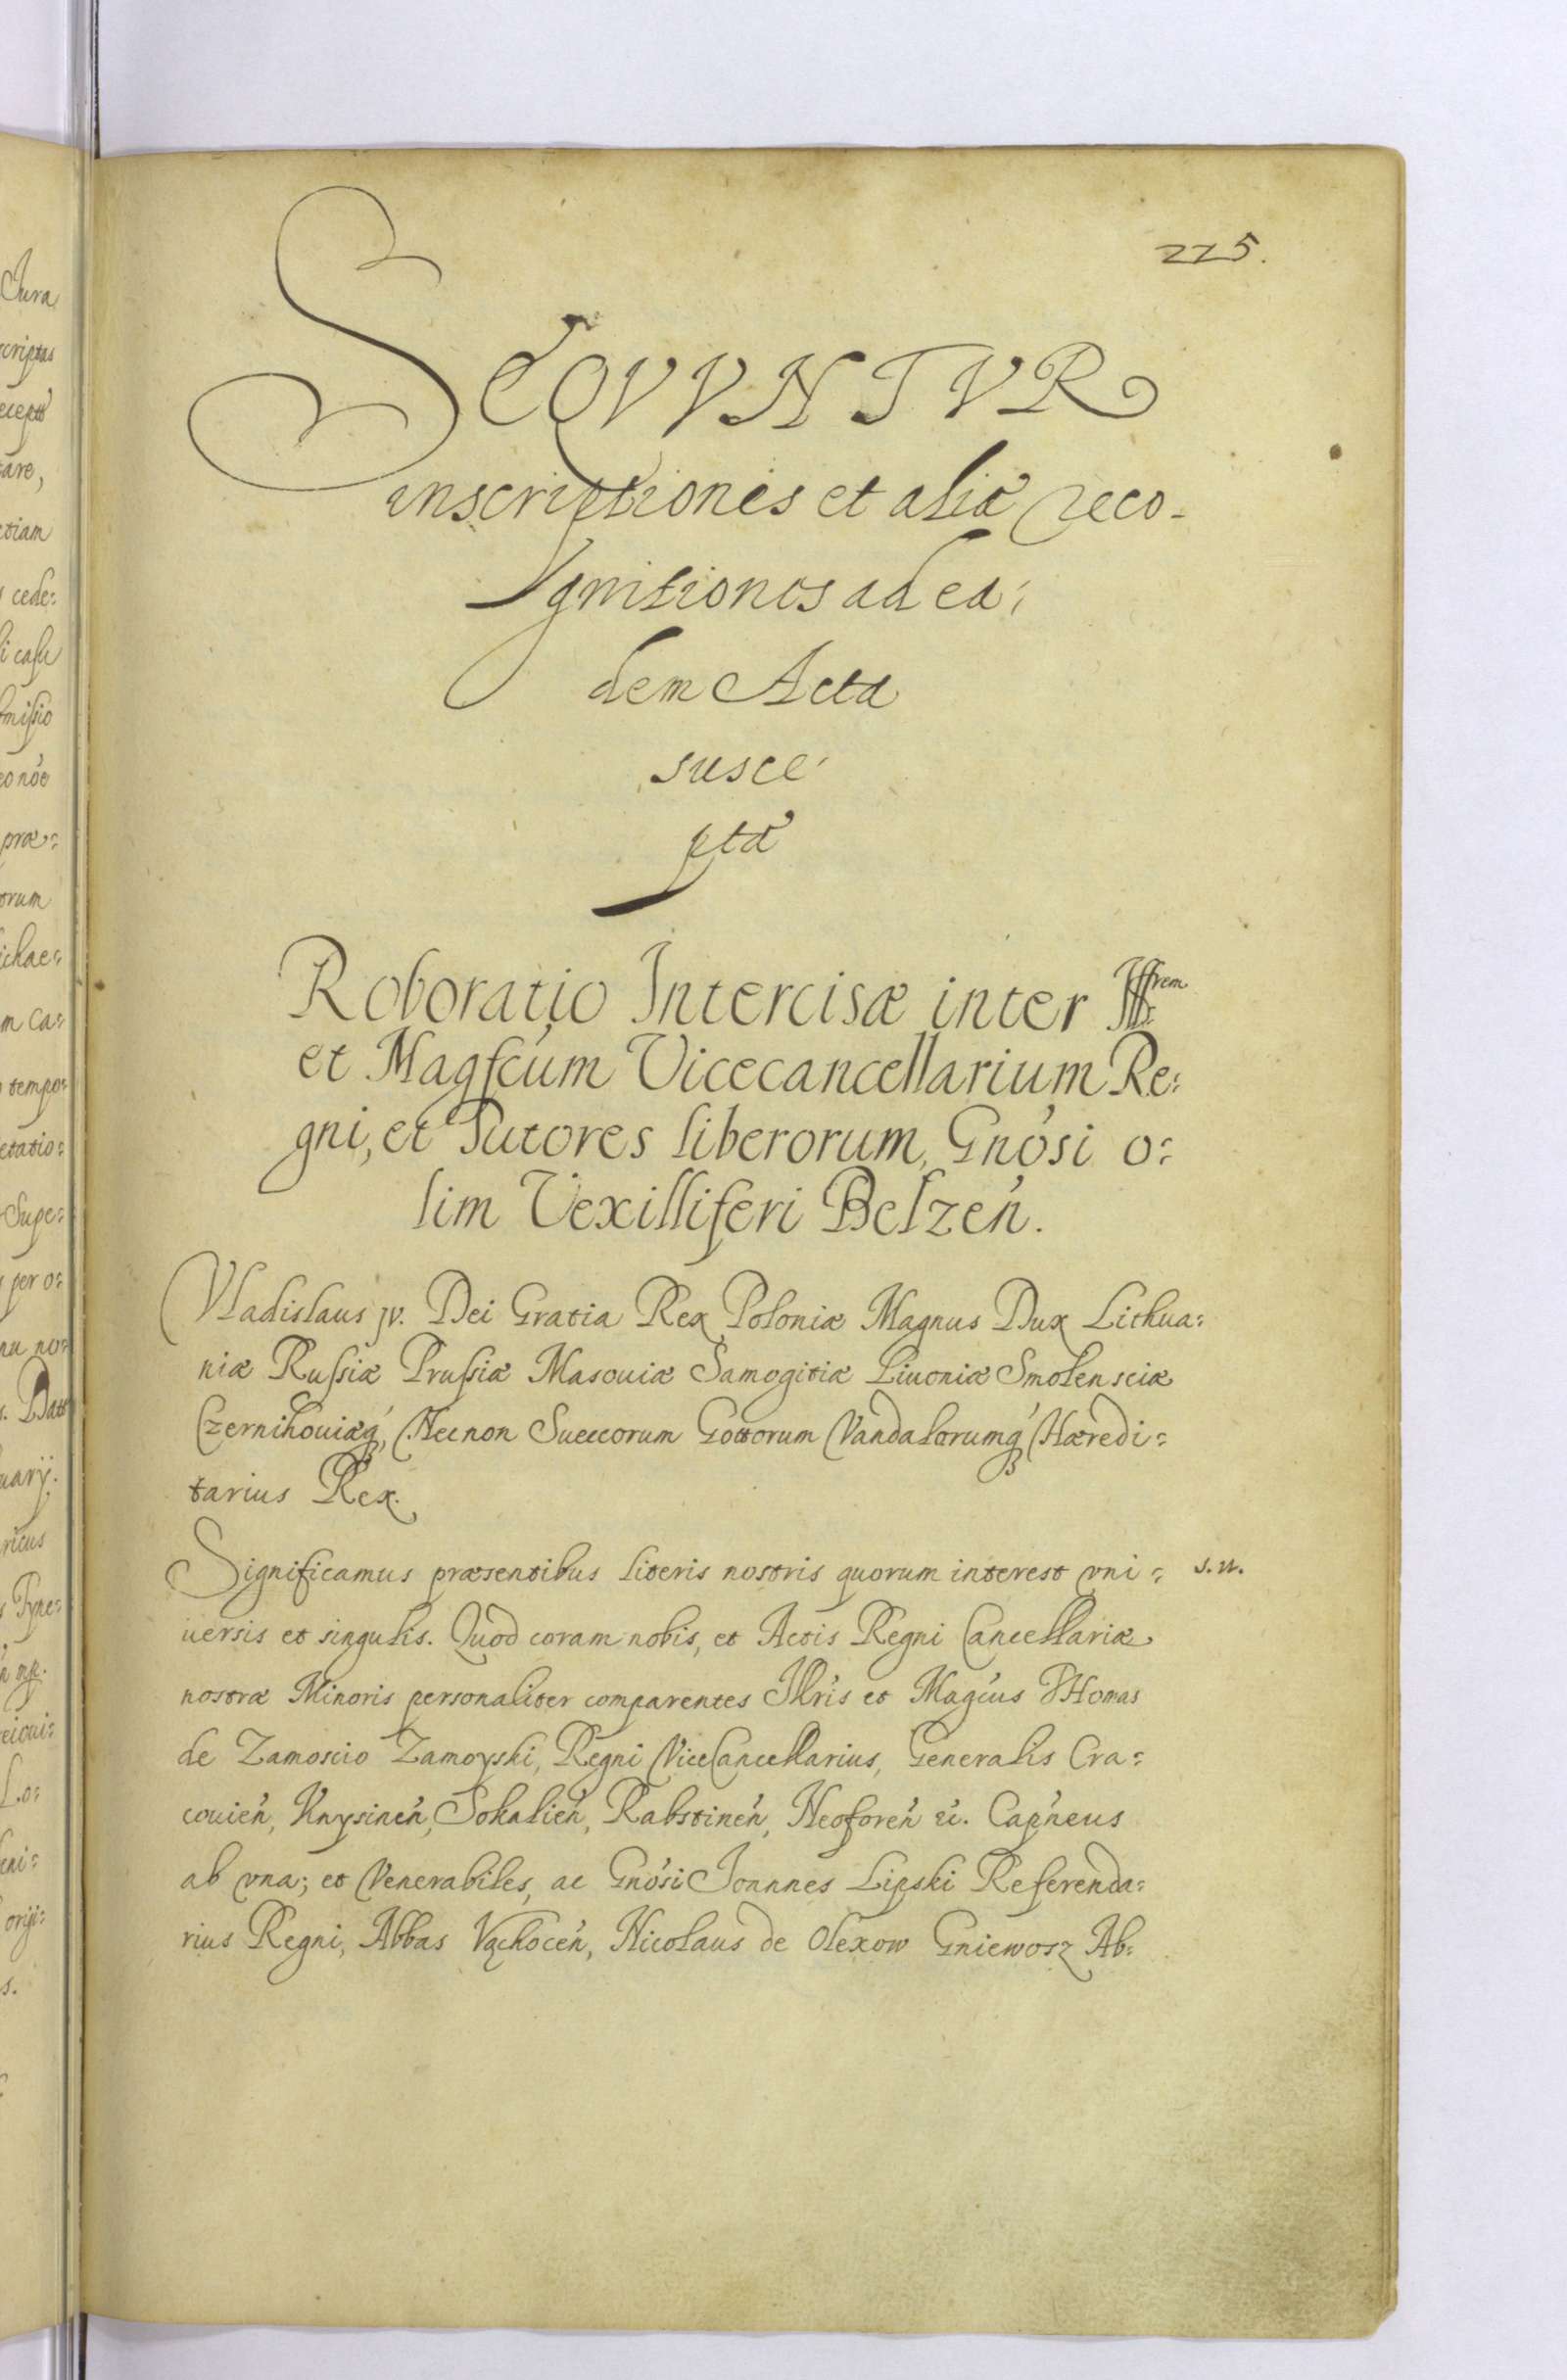 225.
SEQVVNTVR
inscriptiones et aliæ reco-
gnitiones ad ea:
dem Acta
susce-
ptæ
Roboratio Intercisæ inter Illrem
et Magfcum Vicecancellarium Re:
gni, et Tutores liberorum, Gnósi o:
lim Vexilliferi Belzeń.
Vladislaus jv. Dei Gratia Rex Poloniæ Magnus Dux Lithua:
niæ Russiæ Prussiæ Masouiæ Samogitiæ Liuoniæ Smolensciæ
Czernihouiæq́, Necnon Sueccorum Gottorum Vandalorumq́ Hæredi:
tarius Rex.
Significamus præsentibus literis nostris quorum interest vni: s.n.
uersis et singulis. Quod coram nobis, et Actis Regni Cancellariæ
nostræ Minoris personaliter comparentes Illris et Magcus THomas
de Zamoscio Zamoyski, Regni ViceCancellarius, Generalis Cra:
couień, Knysineń, Sokalień, Rabstineń, Neoforeń &. Capneus
ab vna; et Venerabiles, ac Gnósi Joannes Lipski Referenda:
rius Regni, Abbas Vąchoceń, Nicolaus de Olexow Gniewosz Ab:
Jura
criptas
tare,
etiam
cede:
i casu
præ:
orum
ichae:
m ca:
tempo:
etatio:
Supe:
per o:
no:
Datt
uarij.
ricus
Tyne:
Lo:
origi:
s.